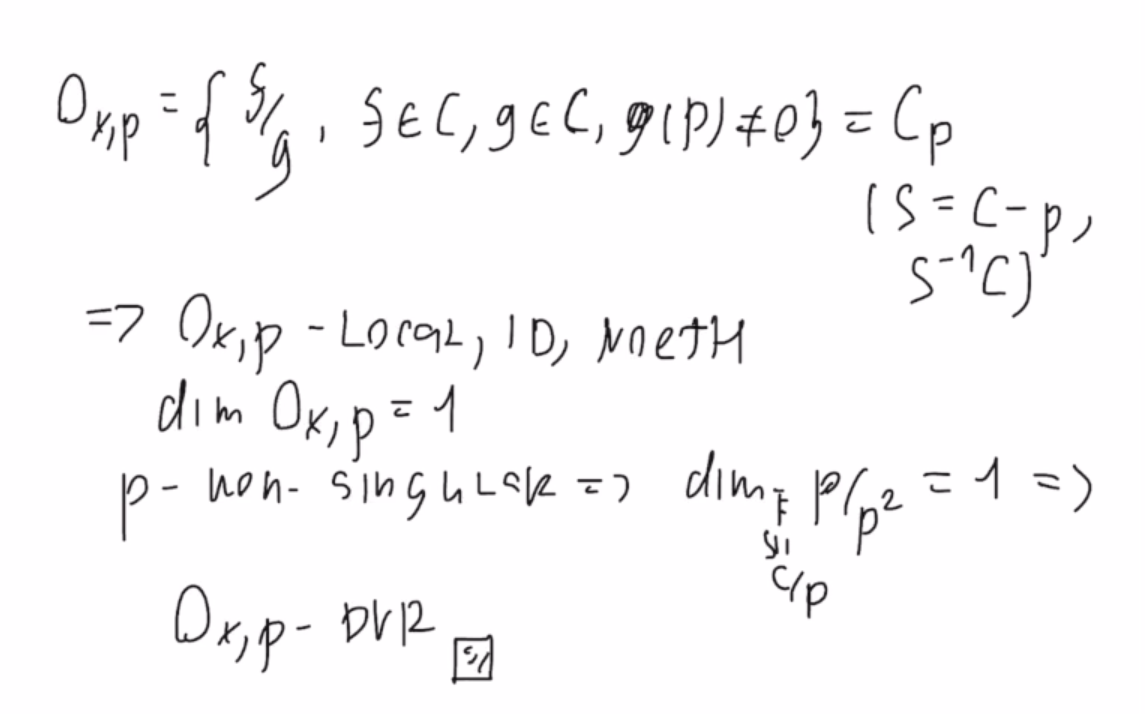 O_{x,p} = { f/g, f ∈ C, g ∈ C, g(p) ≠ 0 } = C_p
(S = C - p,
S^{-1}C)
=> O_{x,p} - Local, ID, Noeth
dim O_{x,p} = 1
p - non-singular => dim_F p/p^2 = 1 =>
C/p
O_{x,p} - DVR